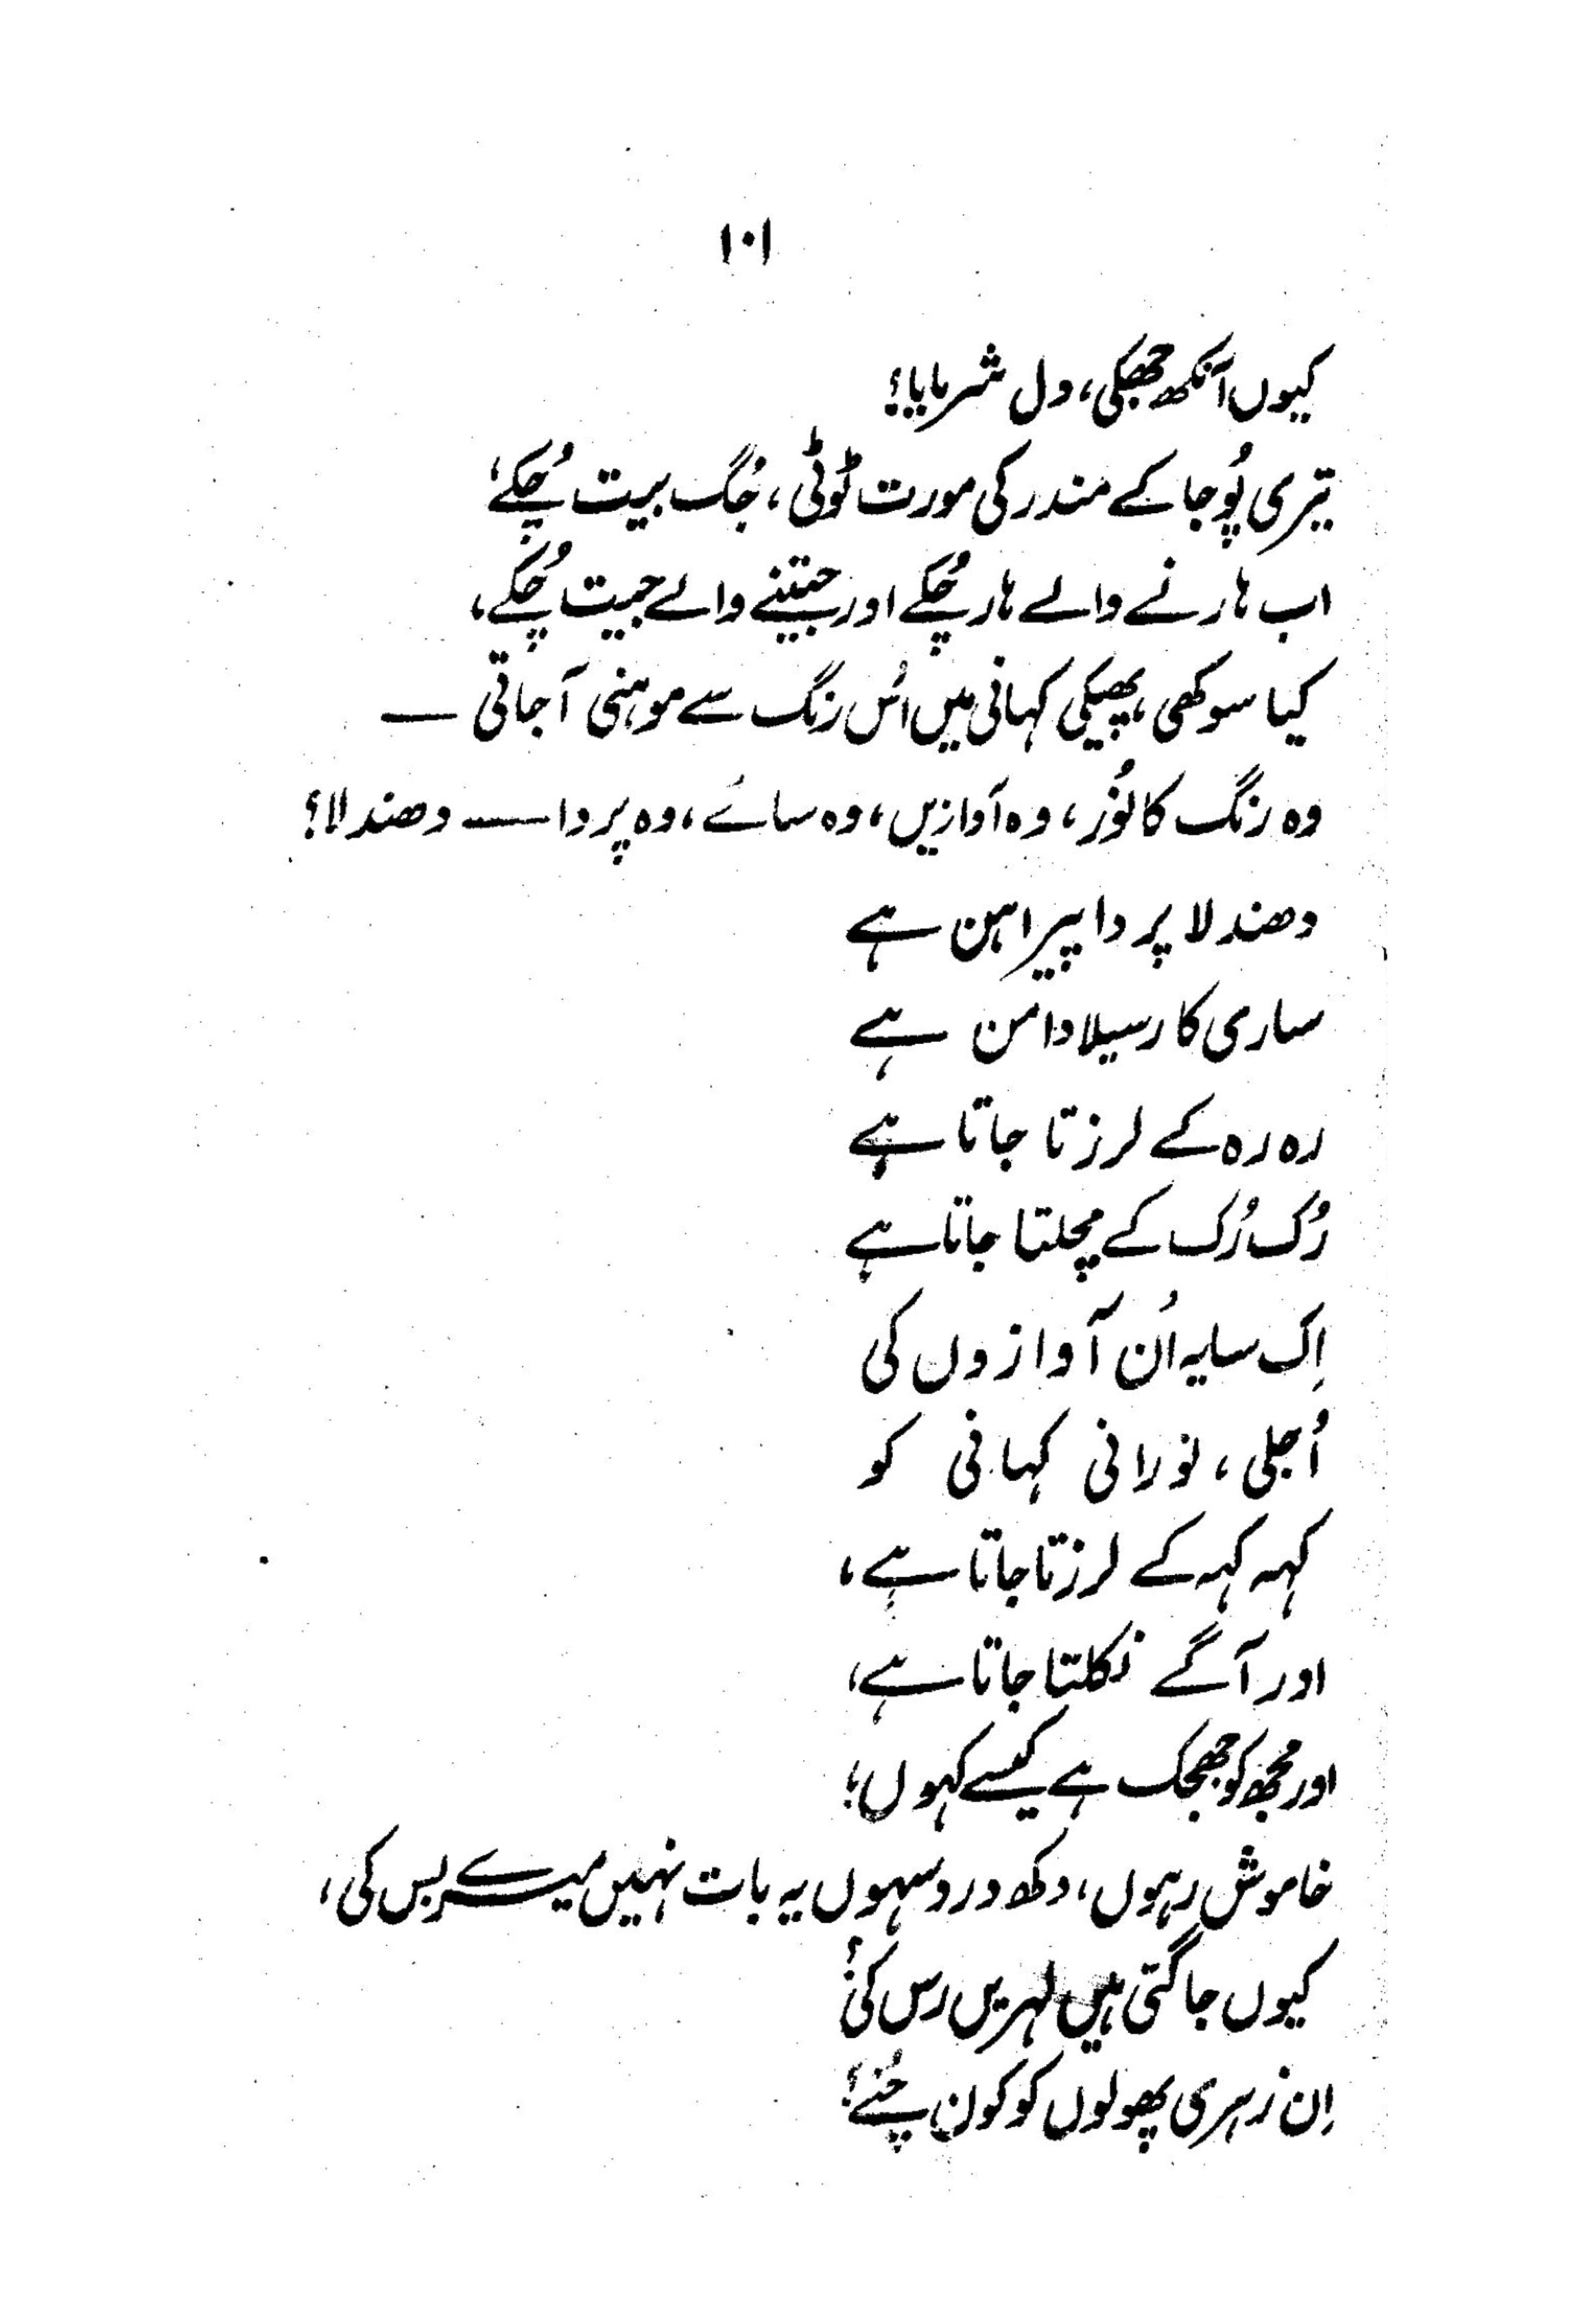 ۱۰۱
کیوں آنکھ جھپکی، دل شرمایا؟
تیری پُوجا کے مندر کی مورت ٹوٹی، جُگ بیت چُکے،
اب ہارنے والے ہار چُکے اور جیتنے والے جیت چُکے،
کیا سوکھی، پھیکی کہانی میں اُس رنگ سے موہنی آجاتی —
وہ رنگ کا نُور، وہ آوازیں، وہ سائے، وہ پردا — دھندلا؟
دھندلا پردا پیراہن ہے
ساری کا رسیلا دامن ہے
رہ رہ کے لرزتا جاتا ہے
رُک رُک کے مچلتا جاتا ہے
اِک سایہ اُن آوازوں کی
اُجلی، نورانی کہانی کو
کہہ کہہ کے لرزتا جاتا ہے،
اور آگے نکلتا جاتا ہے،
اور مجھ کو جھجک ہے کیسے کہوں؛
خاموش رہوں، دکھ درد سہوں یہ بات نہیں میرے بس کی،
کیوں جاگتی ہیں لہریں رس کی؟
اِن زہری پھولوں کو کون چُنے؟